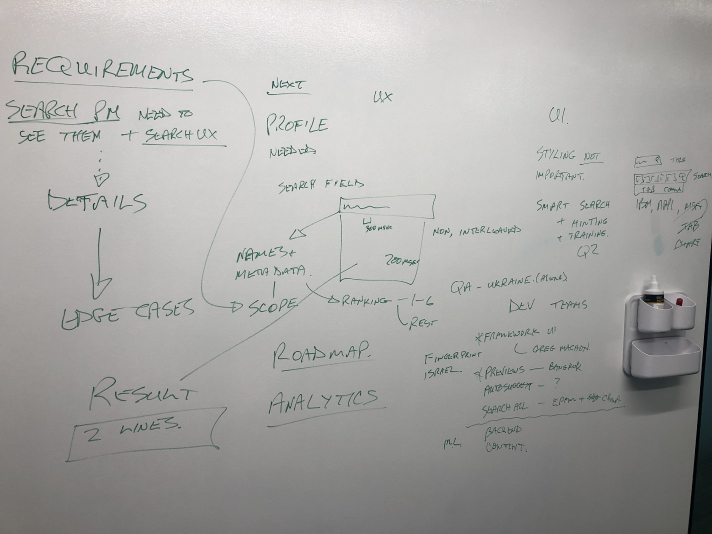 REQUIREMENTS
SEARCH PM NEED TO
SEE THEM + SEARCH UX
DETAILS
EDGE CASES
RESULT
2 LINES.
NEXT
PROFILE
NEEDED
SEARCH FIELD
300 MSEC
200 MSEC
NAMES +
METADATA.
SCOPE
RANKING - 1-6
REST
ROADMAP.
ANALYTICS
UX
NON, INTERLEAVED
UI.
STYLING NOT
IMPORTANT.
SMART SEARCH
+ HINTING
+ TRAINING.
Q2
QA - UKRAINE.
DEV TEAMS
* FRAMEWORK UI
GREG
FINGERPRINT
ISRAEL.
* PREVIEWS - BANGKOK
AUTOSUGGEST - ?
SEARCH ALL - EPAM +
ML
BACKEND
CONTENT.
SEARCH
TAB